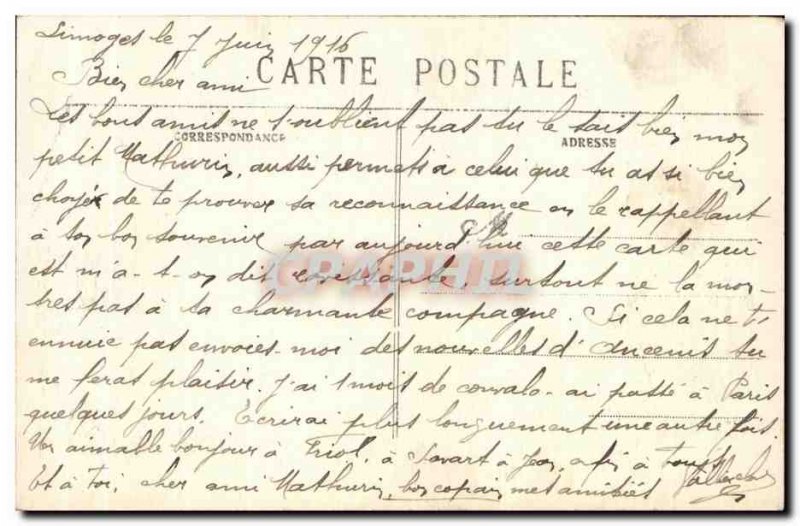 Limoges le 7 Juin 1916
Bien cher ami
CARTE POSTALE
Les bons amis ne s'oublient pas tu le sais bien mon
CORRESPONDANCE
ADRESSE
petit Mathurin, aussi permets a celui que tu as si bien
choyé de te prouver sa reconnaissance en le rappellant
à ton bon souvenir par aujourd'hui cette carte qui
est m'a-t-on dit ravissante, surtout ne la mon-
tres pas à ta charmante compagne. Si cela ne t'
ennuie pas envoies-moi des nouvelles d'Ancenis tu
me feras plaisir. J'ai 1 mois de convalo- ai passé à Paris
quelques jours. Ecrirai plus longuement une autre fois.
Un aimable bonjour à Friol, à Savart à Jean, à
Et à toi, cher ami Mathurin, bon copain mes amitiés